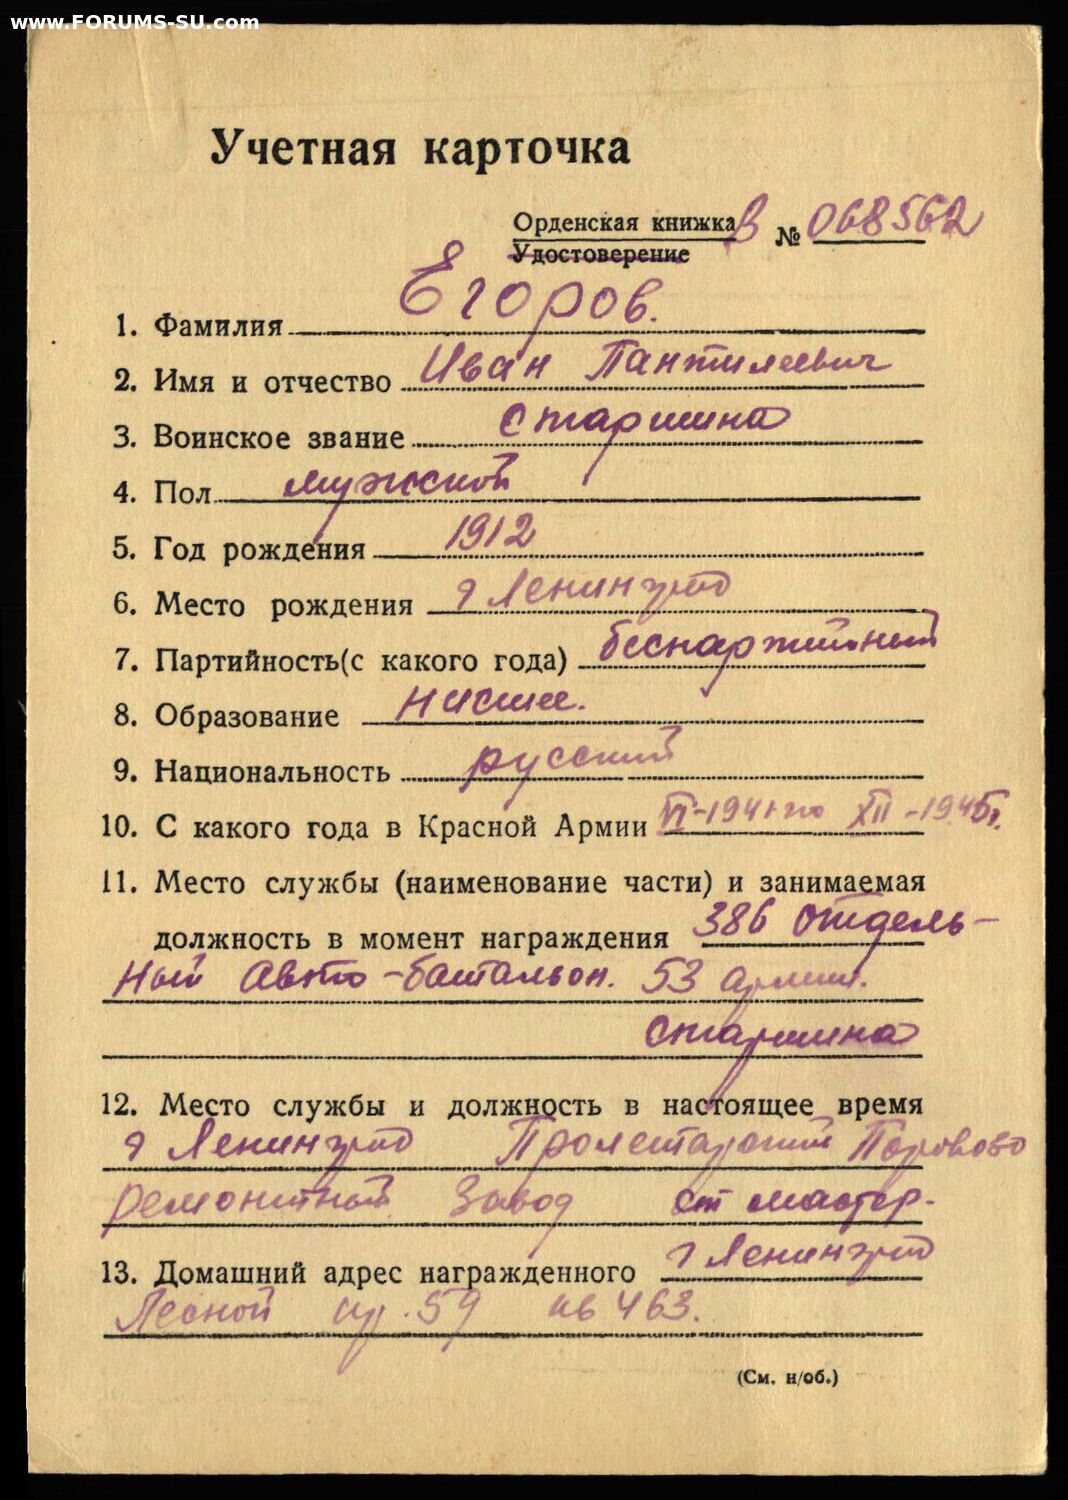 www.FORUMS-SU.com
Учетная карточка
Орденская книжка В № 068562
Удостоверение
1. Фамилия Егоров.
2. Имя и отчество Иван Пантилеевич
3. Воинское звание Старшина
4. Пол мужской
5. Год рождения 1912
6. Место рождения г Ленинград
7. Партийность(с какого года) беспартийный
8. Образование низшее.
9. Национальность русский
10. С какого года в Красной Армии VI-1941 по XII-1945г.
11. Место службы (наименование части) и занимаемая
должность в момент награждения 386 отдель-
ный авто-батальон. 53 армии.
Старшина
12. Место службы и должность в настоящее время
г Ленинград Пролетарский Паровозо
ремонтный завод ст мастер.
13. Домашний адрес награжденного г Ленинград
Лесной пр. 59 кв 463.
(См. н/об.)